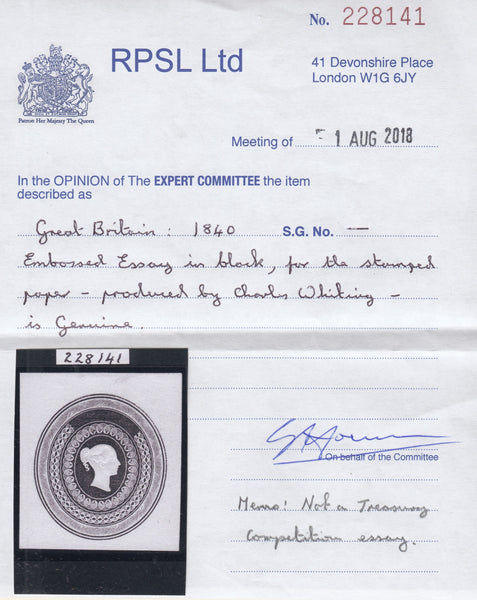 No. 228141
RPSL Ltd
41 Devonshire Place
London W1G 6JY
Patron Her Majesty The Queen
Meeting of 1 AUG 2018
In the OPINION of The EXPERT COMMITTEE the item
described as
Great Britain: 1840 S.G. No. —
Embossed Essay in black, for the stamped
paper - produced by Charles Whiting -
is Genuine.
228141
On behalf of the Committee
Memo: Not a Treasury
Competition essay.